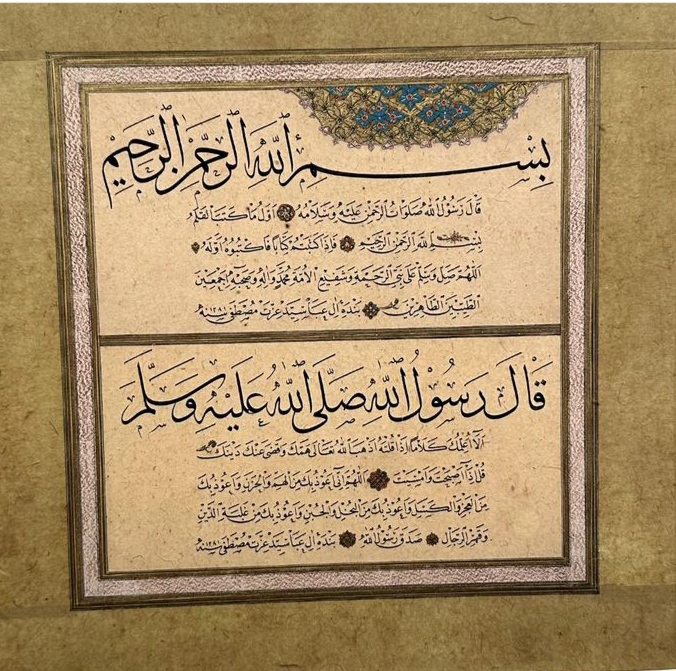 بِسْمِ اللهِ الرَّحْمٰنِ الرَّحِيْمِ
قَالَ رَسُوْلُ اللهِ صَلَوَاتُ الرَّحْمٰنِ عَلَيْهِ وَسَلَامُهُ اَوَّلُ مَا كَتَبَ الْقَلَمُ
بِسْمِ اللهِ الرَّحْمٰنِ الرَّحِيْمِ فَاِذَا كَتَبْتُمْ كِتَابًا فَاكْتُبُوْهُ اَوَّلَهُ
اَللّٰهُمَّ صَلِّ وَسَلِّمْ عَلٰى نَبِيِّ الرَّحْمَةِ وَشَفِيْعِ الْاُمَّةِ مُحَمَّدٍ وَاٰلِهِ وَصَحْبِهِ اَجْمَعِيْنَ
الطَّيِّبِيْنَ الطَّاهِرِيْنَ بندهٔ آل عبا سيد عزت مصطفى سنه ١٢٨١
قَالَ رَسُوْلُ اللهِ صَلَّى اللهُ عَلَيْهِ وَسَلَّمَ
اَلَا اُعَلِّمُكَ كَلَامًا اِذَا قُلْتَهُ اَذْهَبَ اللهُ تَعَالٰى هَمَّكَ وَقَضٰى عَنْكَ دَيْنَكَ
قُلْ اِذَا اَصْبَحْتَ وَاَمْسَيْتَ اَللّٰهُمَّ اِنِّى اَعُوْذُ بِكَ مِنَ الْهَمِّ وَالْحُزْنِ وَاَعُوْذُ بِكَ
مِنَ الْعَجْزِ وَالْكَسَلِ وَاَعُوْذُ بِكَ مِنَ الْبُخْلِ وَالْجُبْنِ وَاَعُوْذُ بِكَ مِنْ غَلَبَةِ الدَّيْنِ
وَقَهْرِ الرِّجَالِ صَدَقَ رَسُوْلُ اللهِ بندهٔ آل عبا سيد عزت مصطفى سنه ١٢٨١